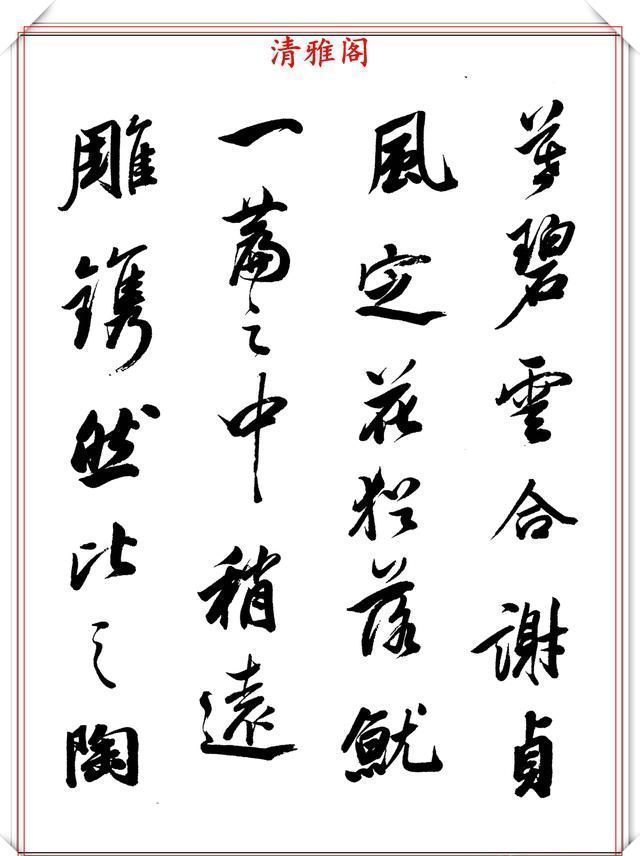 清雅阁
碧雲合謝貞
風定花猶落就
一篇之中稍遠
雕鐫然比之陶